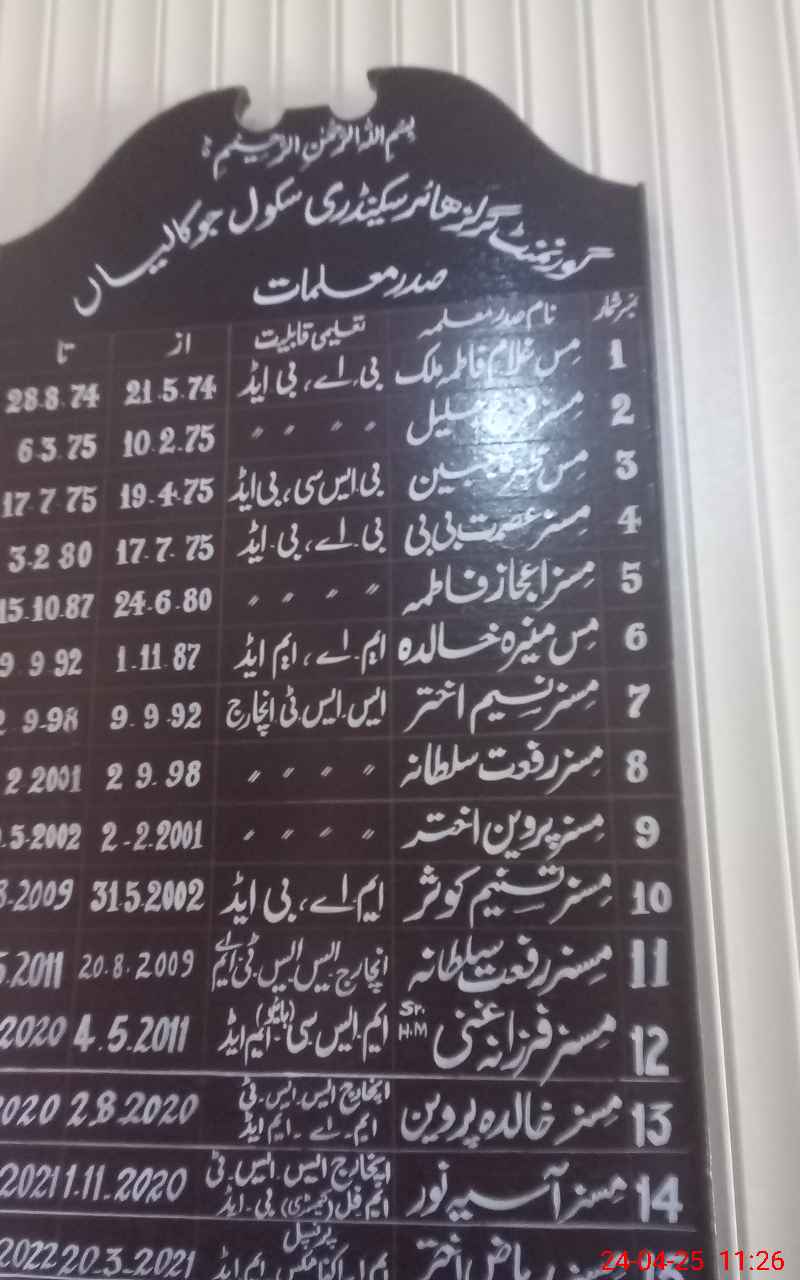 بسم اللہ الرحمٰن الرحیم
گورنمنٹ گرلز ھائر سکینڈری سکول جوکالیاں
صدر معلمات
نمبر شمار نام صدر معلمہ تعلیمی قابلیت از تا
1 مس غلام فاطمہ ملک بی.اے، بی ایڈ 21.5.74 28.8.74
2 مسز جلیل 〃 〃 〃 〃 10.2.75 6.3.75
3 مس جبین بی ایس سی، بی ایڈ 19.4.75 17.7.75
4 مسز عصمت بی بی بی اے، بی ایڈ 17.7.75 3.2.80
5 مسز اعجاز فاطمہ 〃 〃 〃 〃 24.6.80 15.10.87
6 مس منیزہ خالدہ ایم اے، ایم ایڈ 1.11.87 9.9.92
7 مسز نسیم اختر ایس ایس ٹی انچارج 9.9.92 2 9-98
8 مسز رفعت سلطانہ 〃 〃 〃 〃 2 9.98 2 2001
9 مسز پروین اختر 〃 〃 〃 〃 2-2.2001 .5.2002
10 مسز تسنیم کوثر ایم اے، بی ایڈ 31.5.2002 8.2009
11 مسز رفعت سلطانہ انچارج ایس ایس ٹی ایم اے 20.8.2009 5.2011
12 مسز فرزانہ غنی Sr. H.M ایم ایس سی (باٹنی) ایم ایڈ 4.5.2011 2020
13 مسز خالدہ پروین انچارج ایس.ایس.ٹی ایم۔اے۔ایم ایڈ 2.8.2020 2020
14 مسز آسیہ نور انچارج ایس ایس ٹی ایم فل (کیمسٹری) بی۔ایڈ 1.11.2020 2021
ریاض اختر پرنسپل ایم اے اکنامکس، ایم ایڈ 20.3.2021 2022
24-04-25 11:26